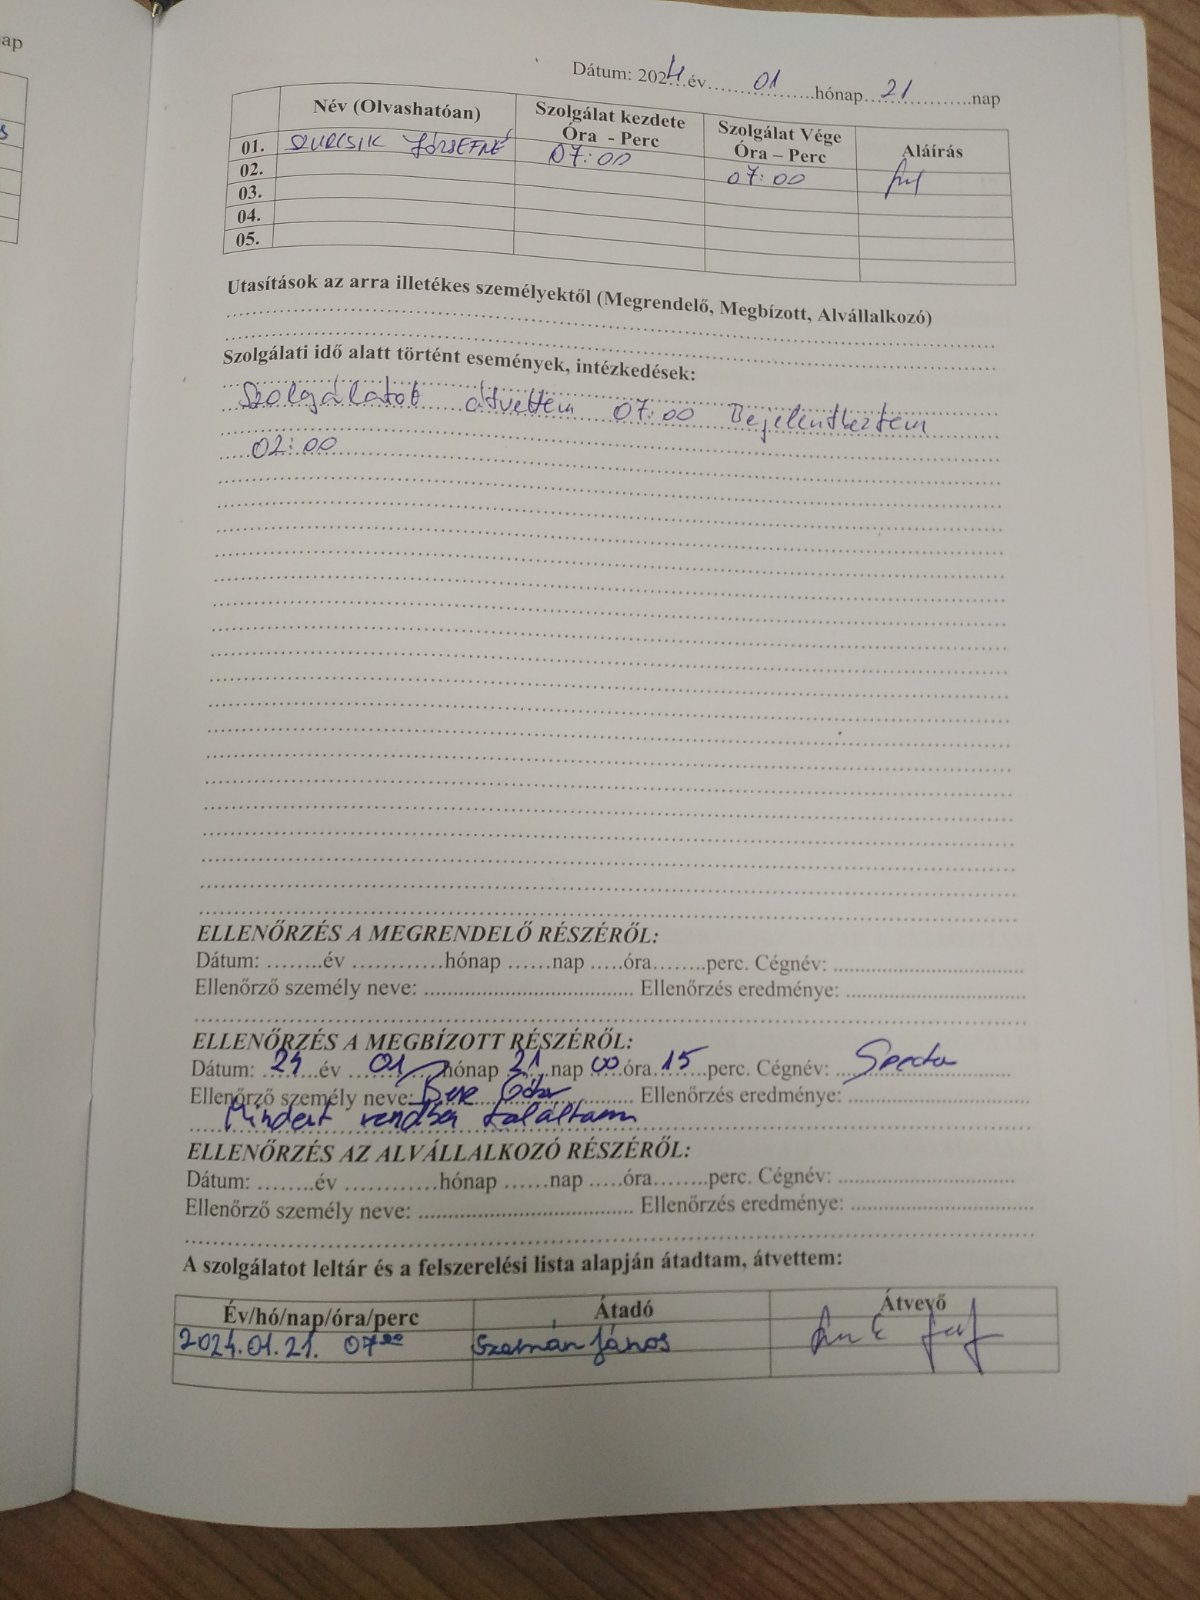 ap
Dátum: 2024 év 01 hónap 21 nap
Név (Olvashatóan) Szolgálat kezdete Óra - Perc Szolgálat Vége Óra – Perc Aláírás
01. SZURCSIK JÓZSEFNÉ 07:00 07:00
02.
03.
04.
05.
Utasítások az arra illetékes személyektől (Megrendelő, Megbízott, Alvállalkozó)
Szolgálati idő alatt történt események, intézkedések:
Szolgálatot átvettem 07:00 Bejelentkeztem
02:00
ELLENŐRZÉS A MEGRENDELŐ RÉSZÉRŐL:
Dátum: ........év ............hónap ......nap .....óra........perc. Cégnév:
Ellenőrző személy neve: Ellenőrzés eredménye:
ELLENŐRZÉS A MEGBÍZOTT RÉSZÉRŐL:
Dátum: 24 év 01 hónap 21 nap 00 óra 15 perc. Cégnév:
Ellenőrző személy neve: Bere Ellenőrzés eredménye:
Mindent rendben találtam
ELLENŐRZÉS AZ ALVÁLLALKOZÓ RÉSZÉRŐL:
Dátum: ........év ............hónap ......nap .....óra........perc. Cégnév:
Ellenőrző személy neve: Ellenőrzés eredménye:
A szolgálatot leltár és a felszerelési lista alapján átadtam, átvettem:
Év/hó/nap/óra/perc Átadó Átvevő
2024.01.21. 07 00 János